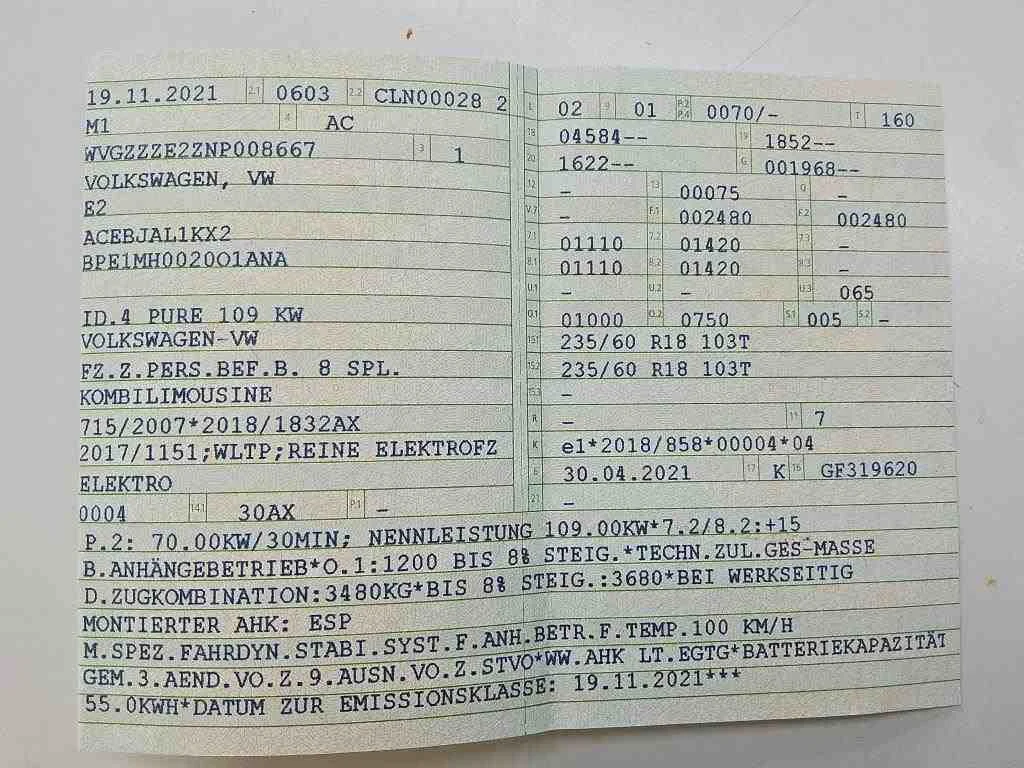 19.11.2021 2.1 0603 2.2 CLN00028 2
M1 4 AC
WVGZZZE2ZNP008667 3 1
VOLKSWAGEN, VW
E2
ACEBJAL1KX2
BPE1MH0020O1ANA
ID.4 PURE 109 KW
VOLKSWAGEN-VW
FZ.Z.PERS.BEF.B. 8 SPL.
KOMBILIMOUSINE
715/2007*2018/1832AX
2017/1151;WLTP;REINE ELEKTROFZ
ELEKTRO
0004 14.1 30AX P.1 -
L 02 9 01 P.2 P.4 0070/- T 160
18 04584-- 19 1852--
20 1622-- G 001968--
12 - 13 00075 Q -
V.7 - F.1 002480 F.2 002480
7.1 01110 7.2 01420 7.3 -
8.1 01110 8.2 01420 8.3 -
U.1 - U.2 - U.3 065
O.1 01000 O.2 0750 S.1 005 S.2 -
15.1 235/60 R18 103T
15.2 235/60 R18 103T
15.3 -
R - 11 7
K e1*2018/858*00004*04
6 30.04.2021 17 K 16 GF319620
21 -
P.2: 70.00KW/30MIN; NENNLEISTUNG 109.00KW*7.2/8.2:+15
B.ANHÄNGEBETRIEB*O.1:1200 BIS 8% STEIG.*TECHN.ZUL.GES-MASSE
D.ZUGKOMBINATION:3480KG*BIS 8% STEIG.:3680*BEI WERKSEITIG
MONTIERTER AHK: ESP
M.SPEZ.FAHRDYN.STABI.SYST.F.ANH.BETR.F.TEMP.100 KM/H
GEM.3.AEND.VO.Z.9.AUSN.VO.Z.STVO*WW.AHK LT.EGTG*BATTERIEKAPAZITÄT
55.0KWH*DATUM ZUR EMISSIONSKLASSE: 19.11.2021***